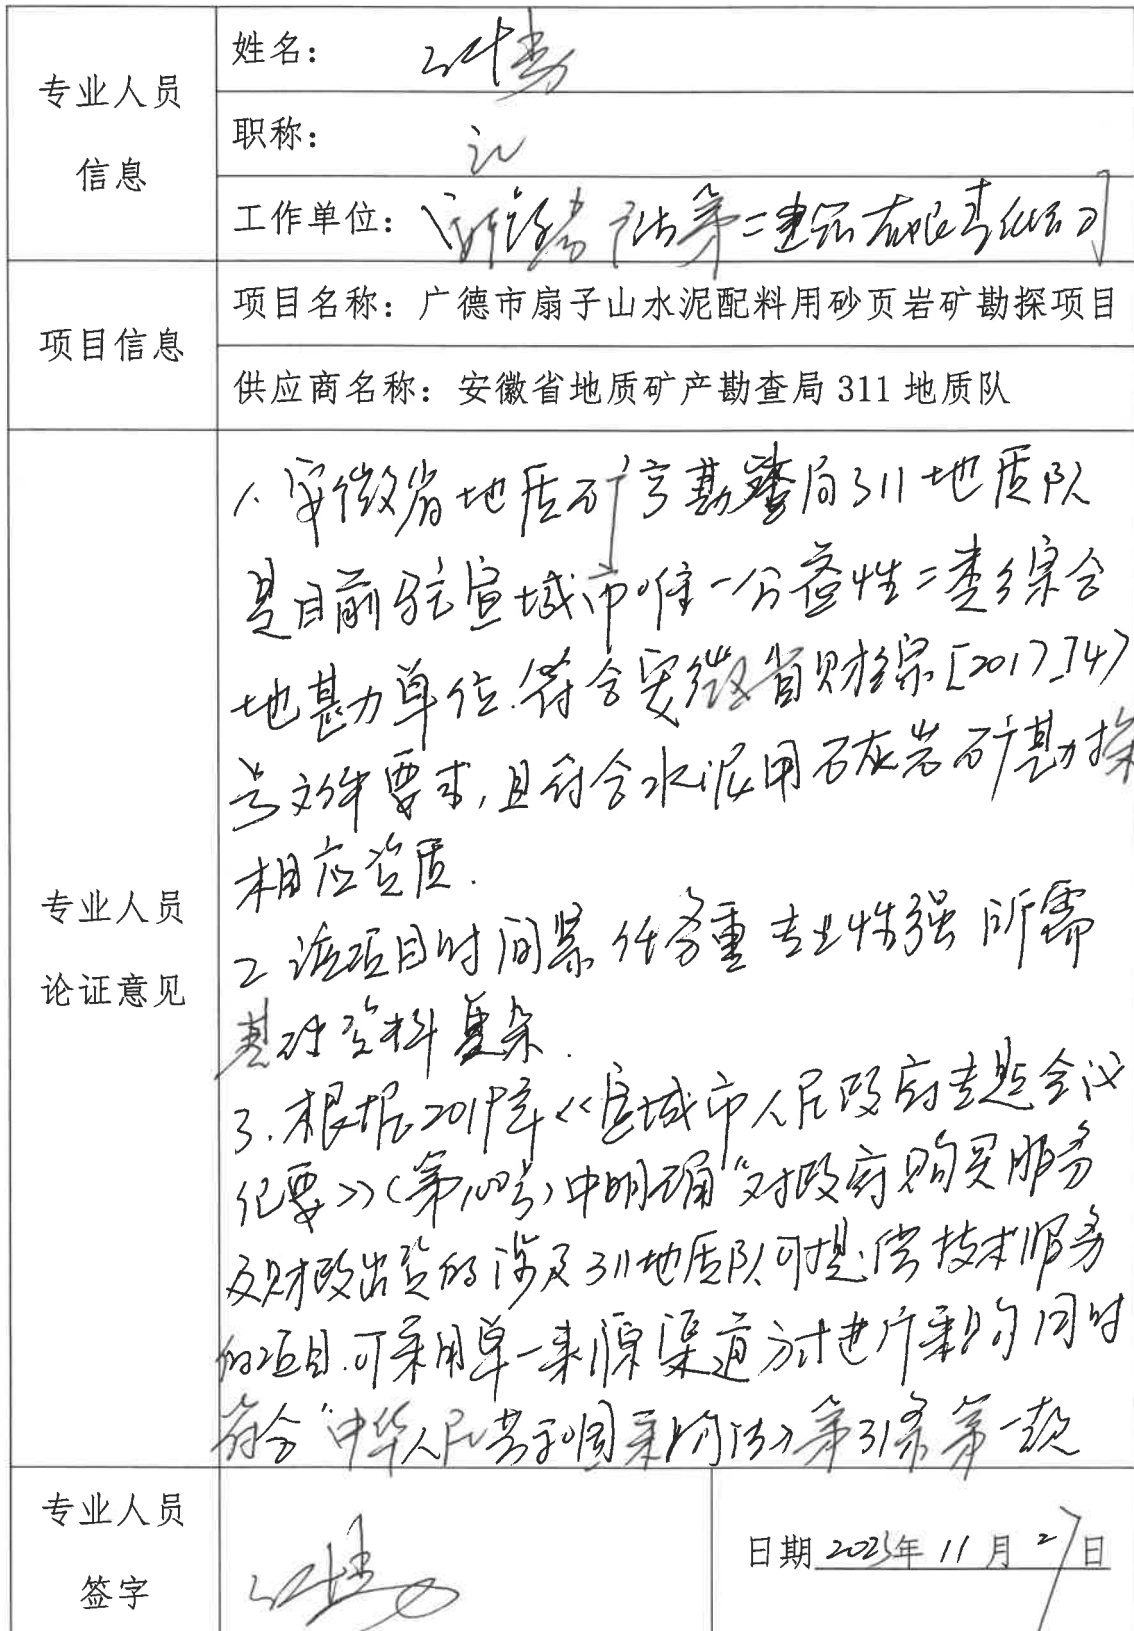 专业人员
信息
姓名：
职称：
工作单位： 第二建筑有限责任公司
项目信息
项目名称：广德市扇子山水泥配料用砂页岩矿勘探项目
供应商名称：安徽省地质矿产勘查局311地质队
专业人员
论证意见
1.安徽省地质矿产勘查局311地质队
是目前驻宣城市唯一公益性二类综合
地勘单位.符合安徽省财综[2017]747
号文件要求,且符合水泥用石灰岩矿勘探
相应资质.
2 该项目时间紧 任务重 专业性强 所需
基础资料复杂.
3.根据2019年<<宣城市人民政府专题会议
纪要>>(第100号)中明确“对政府购买服务
及财政出资的涉及311地质队可提供技术服务
的项目.可采用单一来源渠道方式进行采购 同时
符合“中华人民共和国采购法》第31条第一款
专业人员
签字
日期 2023年 11 月 27日